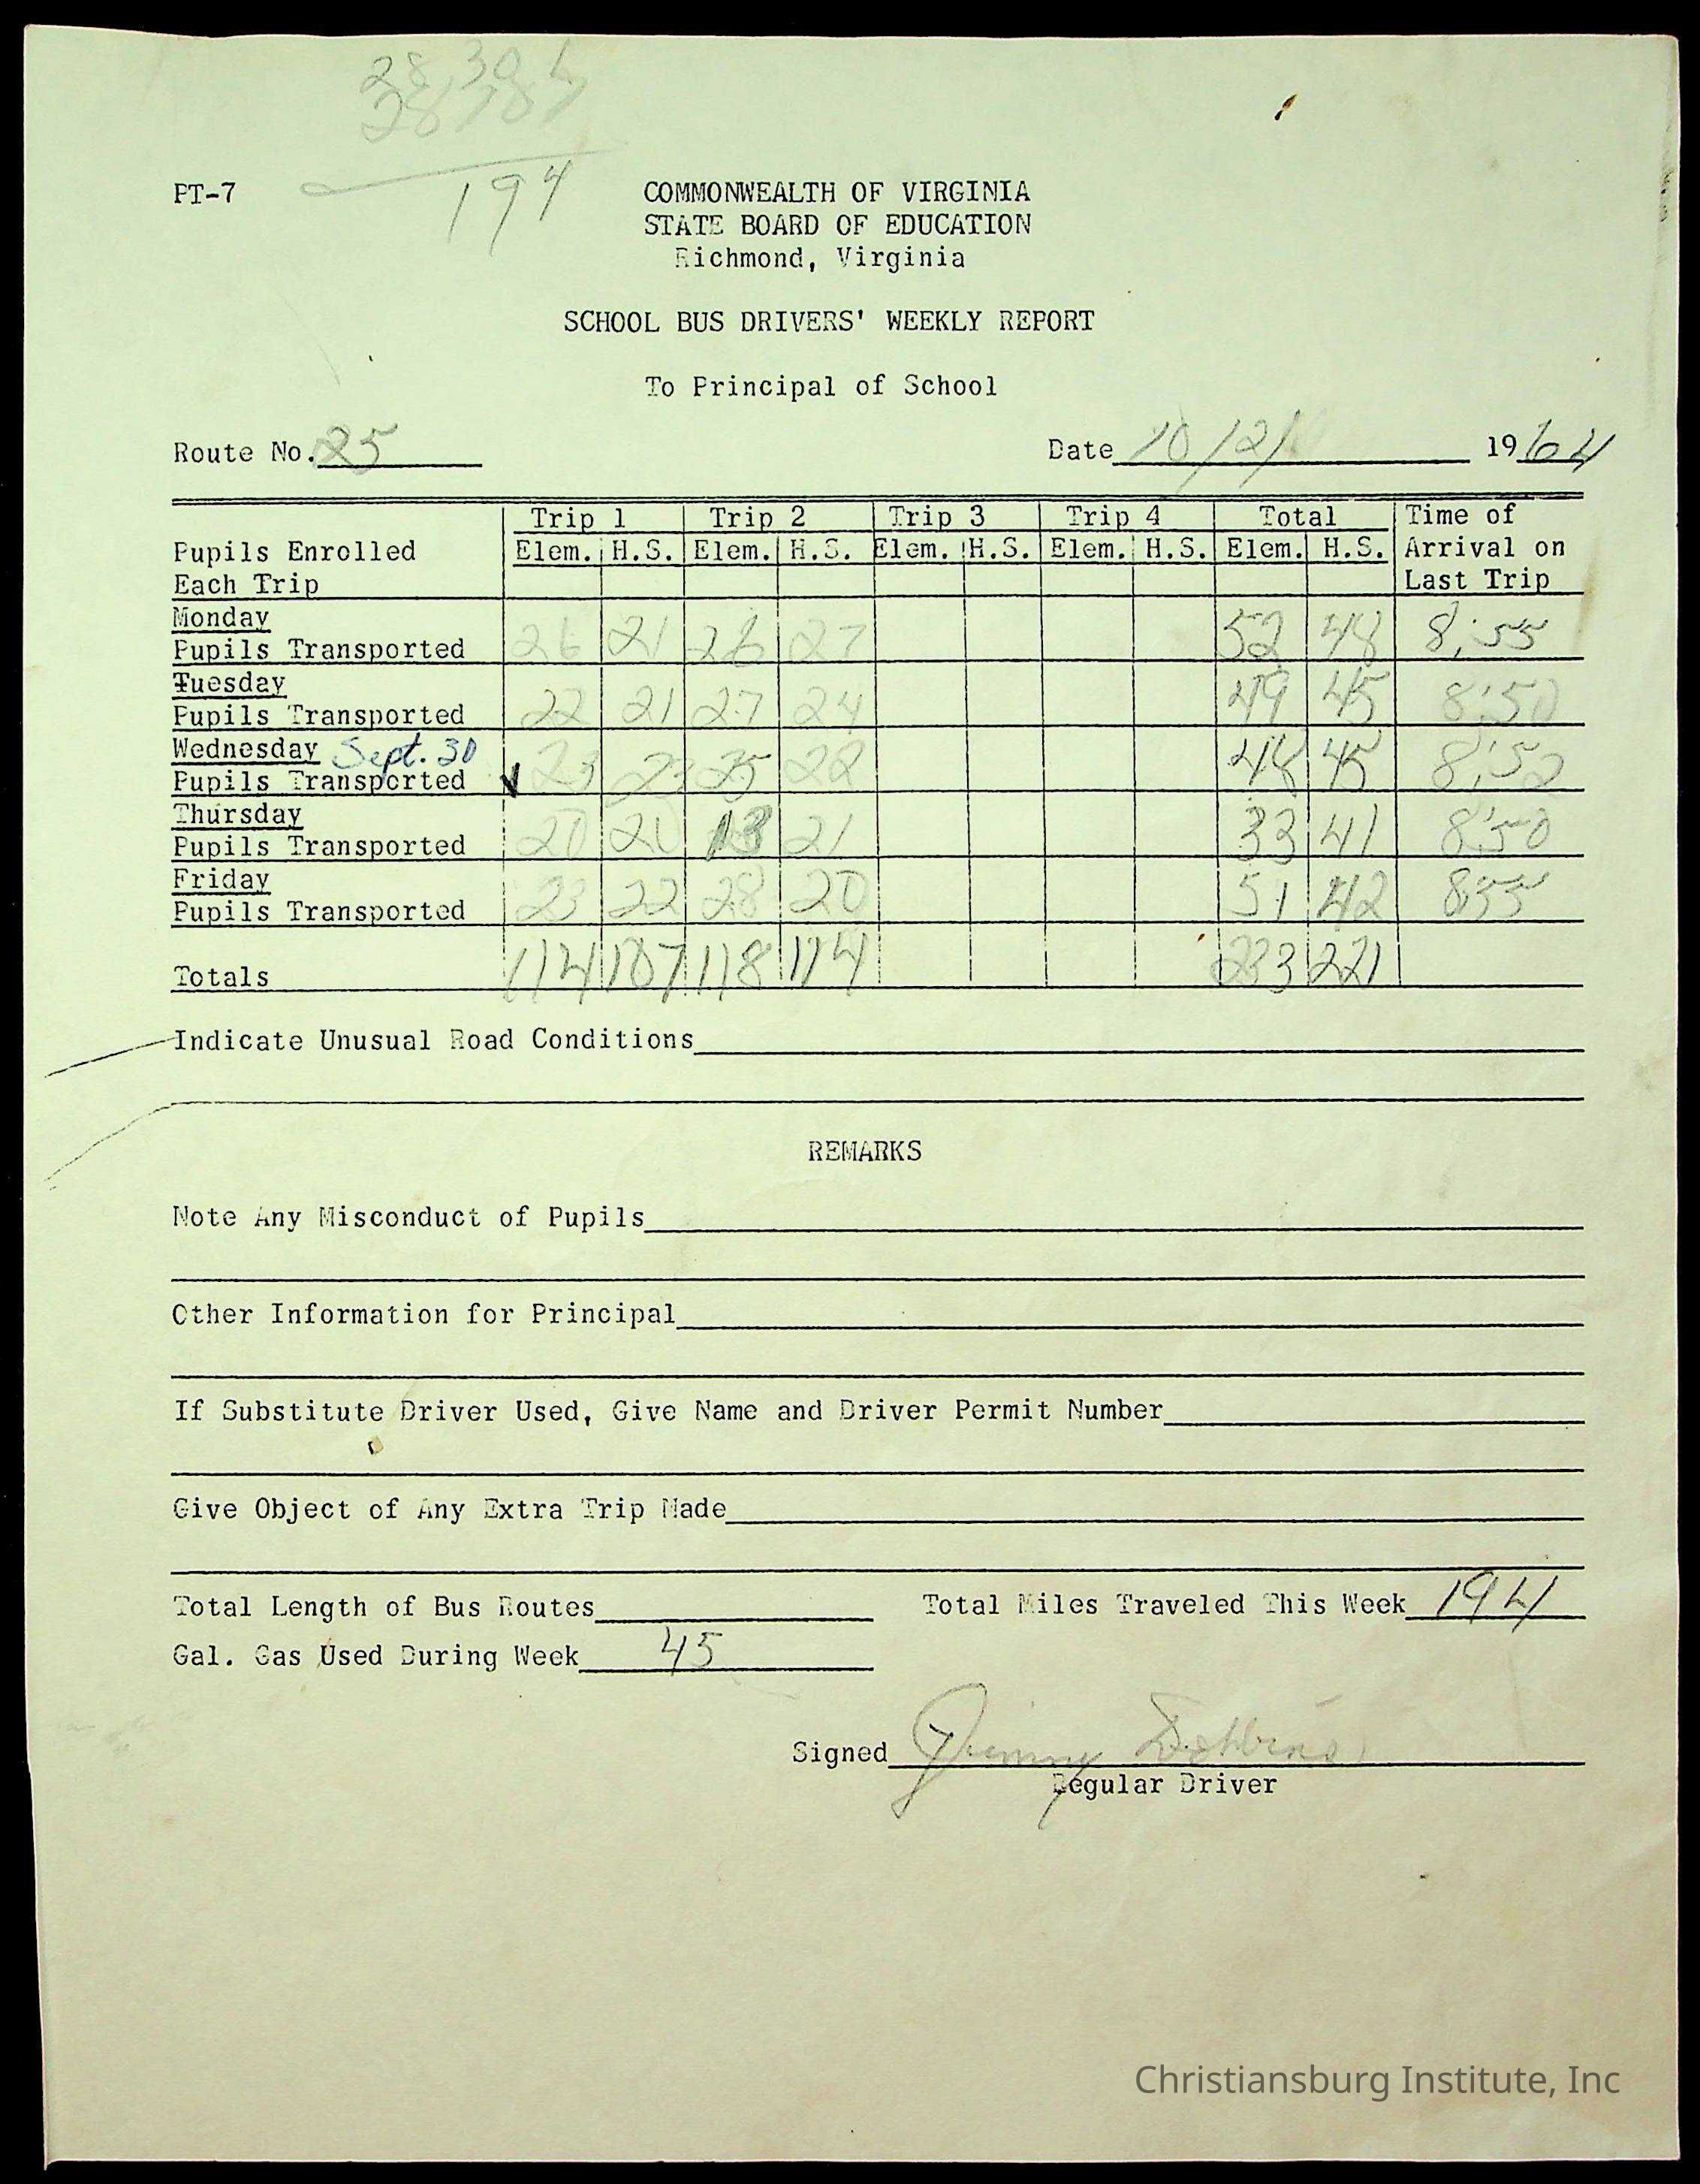 194
PT-7
COMMONWEALTH OF VIRGINIA
STATE BOARD OF EDUCATION
Richmond, Virginia
SCHOOL BUS DRIVERS' WEEKLY REPORT
To Principal of School
Route No. 25 Date 10/2/ 1964
Trip 1 Trip 2 Trip 3 Trip 4 Total Time of
Pupils Enrolled Elem. H.S. Elem. H.S. Elem. H.S. Elem. H.S. Elem. H.S. Arrival on
Each Trip Last Trip
Monday
Pupils Transported 26 21 26 27 52 48 8:55
Tuesday
Pupils Transported 22 21 27 24 49 45 8:50
Wednesday Sept. 30
Pupils Transported 23 23 25 22 48 45 8:50
Thursday
Pupils Transported 20 20 13 21 33 41 8:50
Friday
Pupils Transported 23 22 28 20 51 42 8:55
Totals 114 107 118 114 233 221
Indicate Unusual Road Conditions
REMARKS
Note Any Misconduct of Pupils
Other Information for Principal
If Substitute Driver Used, Give Name and Driver Permit Number
Give Object of Any Extra Trip Made
Total Length of Bus Routes Total Miles Traveled This Week 194
Gal. Gas Used During Week 45
Signed Jimmy
Regular Driver
Christiansburg Institute, Inc